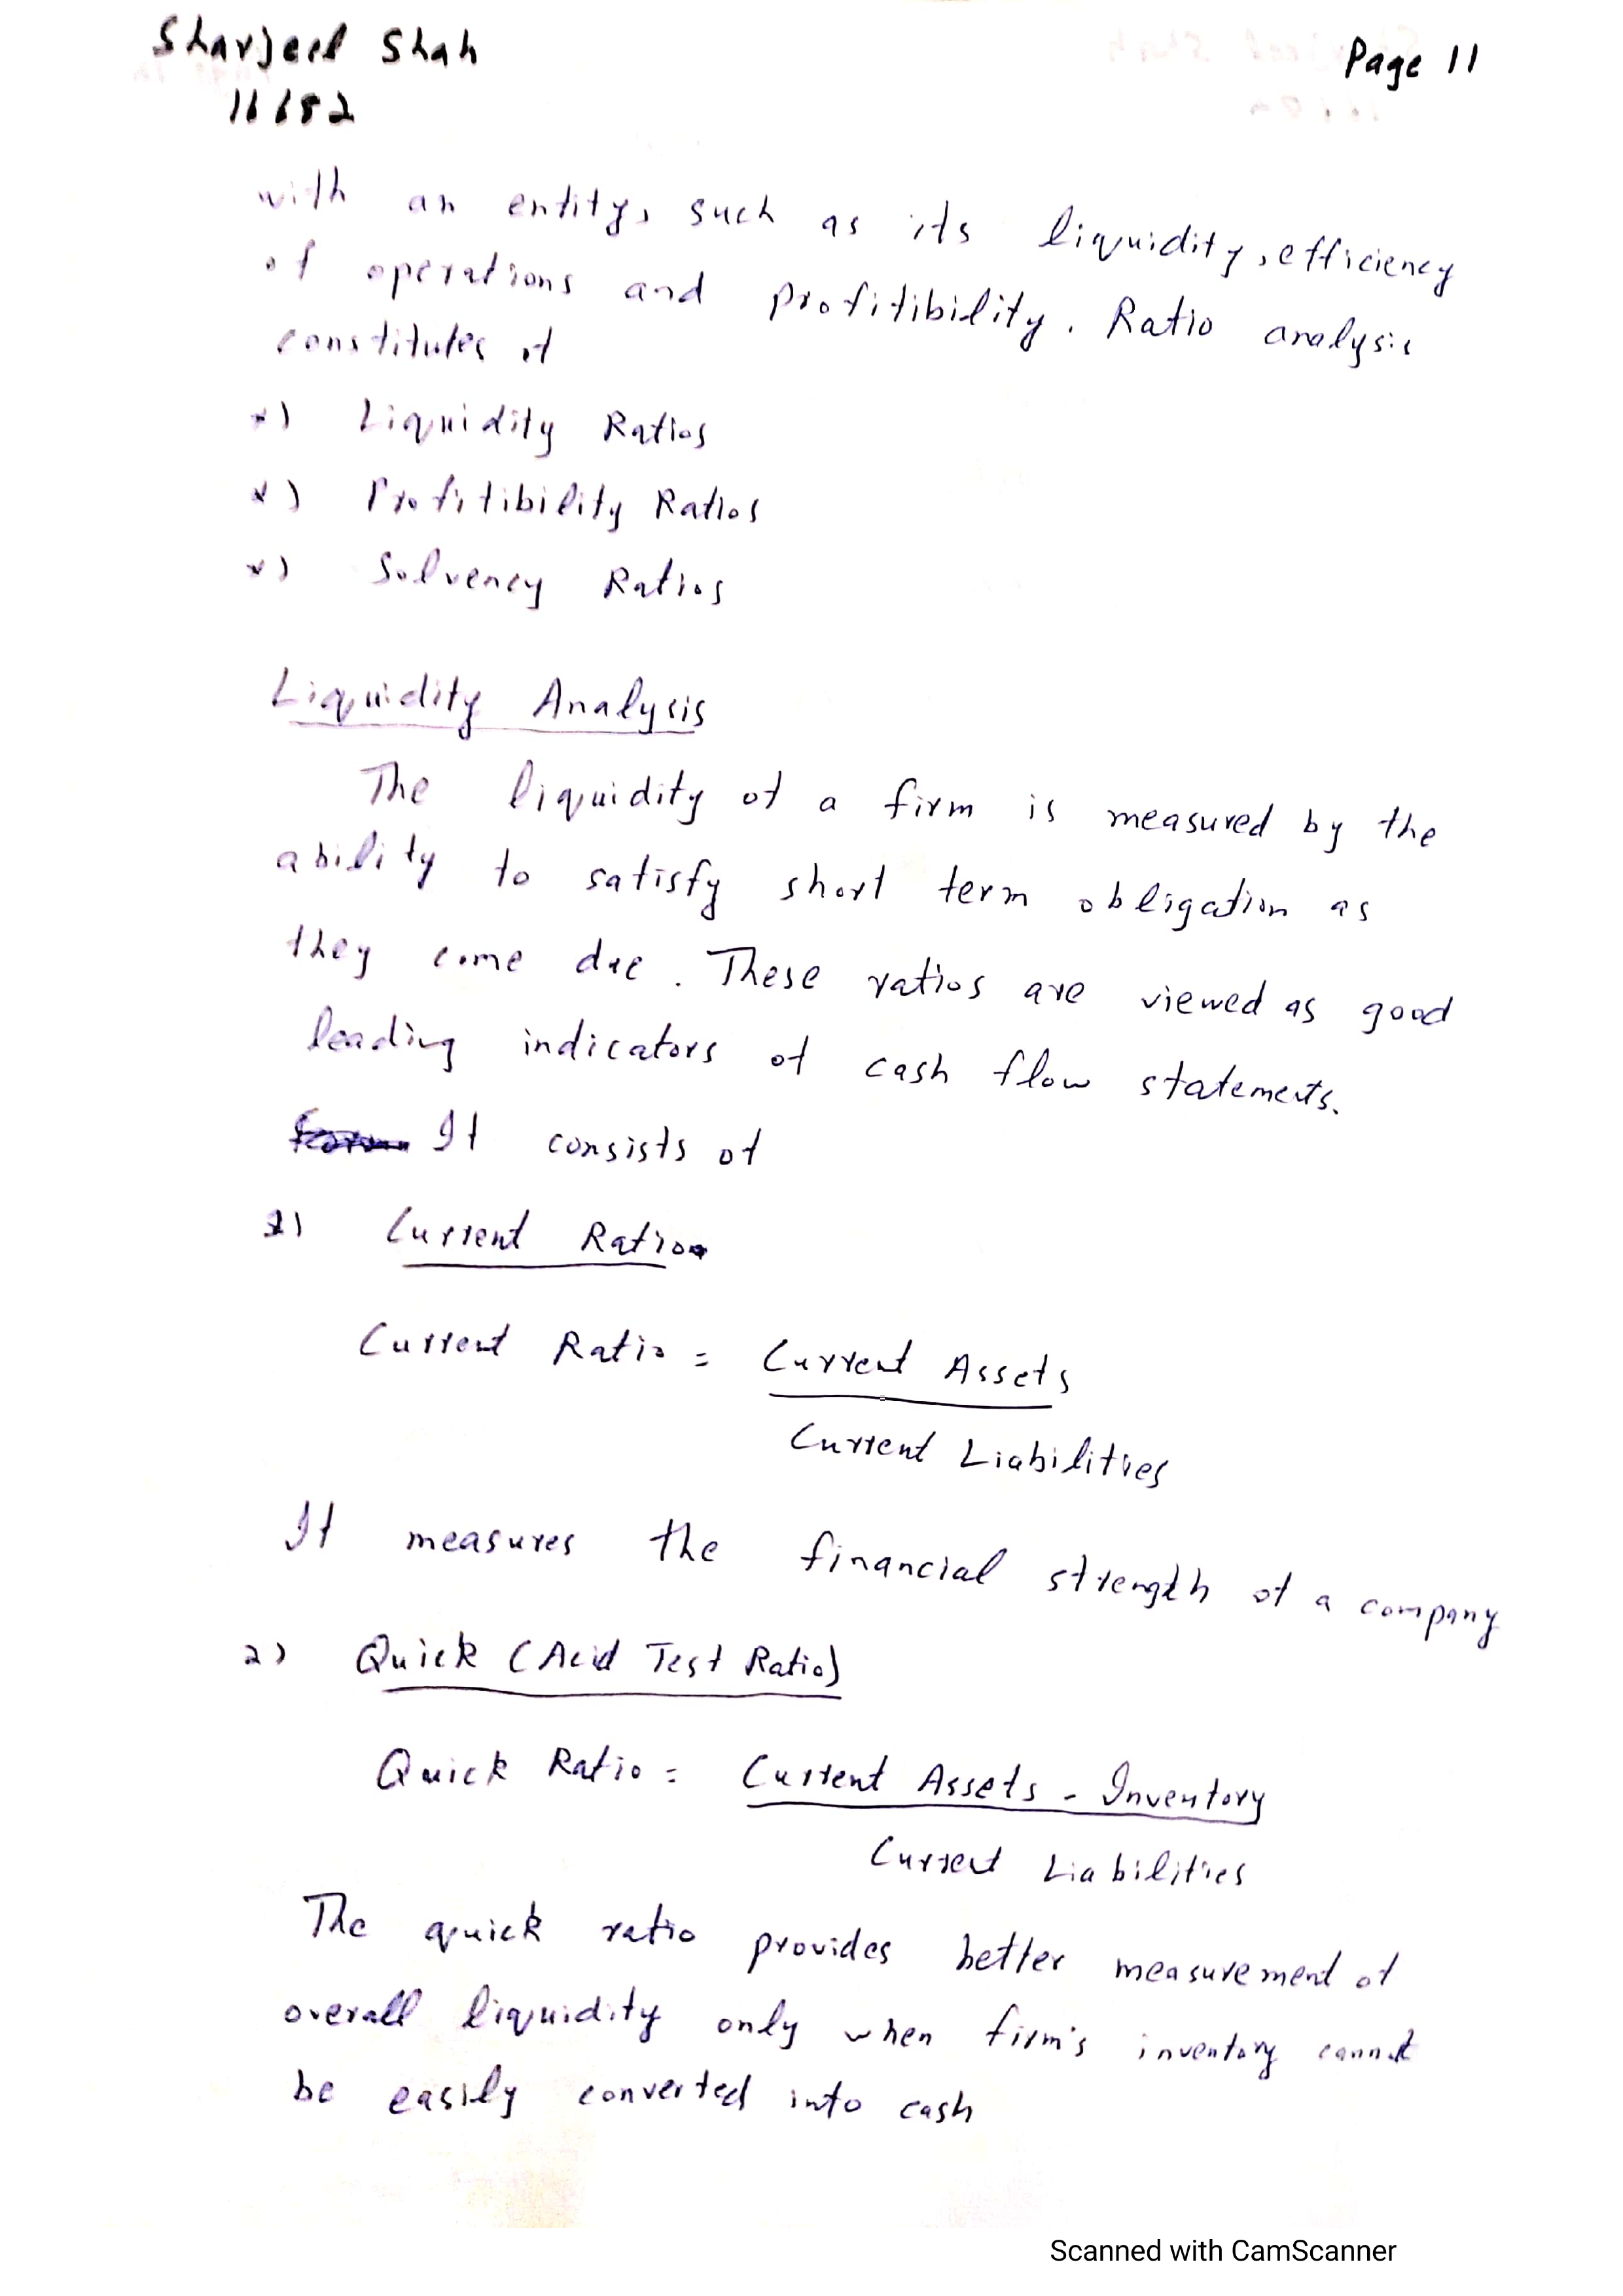 Sharjeel Shah
Page 11
11682
with an entity, such as its liquidity, efficiency
of operations and profitibility. Ratio analysis
constitutes of
*) Liquidity Ratios
*) Profitibility Ratios
*) Solvency Ratios
Liquidity Analysis
The liquidity of a firm is measured by the
ability to satisfy short term obligation as
they come due. These ratios are viewed as good
leading indicators of cash flow statements.
It consists of
1) Current Ratio
Current Ratio = Current Assets
Current Liabilities
It measures the financial strength of a company
2) Quick (Acid Test Ratio)
Quick Ratio = Current Assets - Inventory
Current Liabilities
The quick ratio provides better measurement of
overall liquidity only when firm's inventory cannot
be easily converted into cash
Scanned with CamScanner